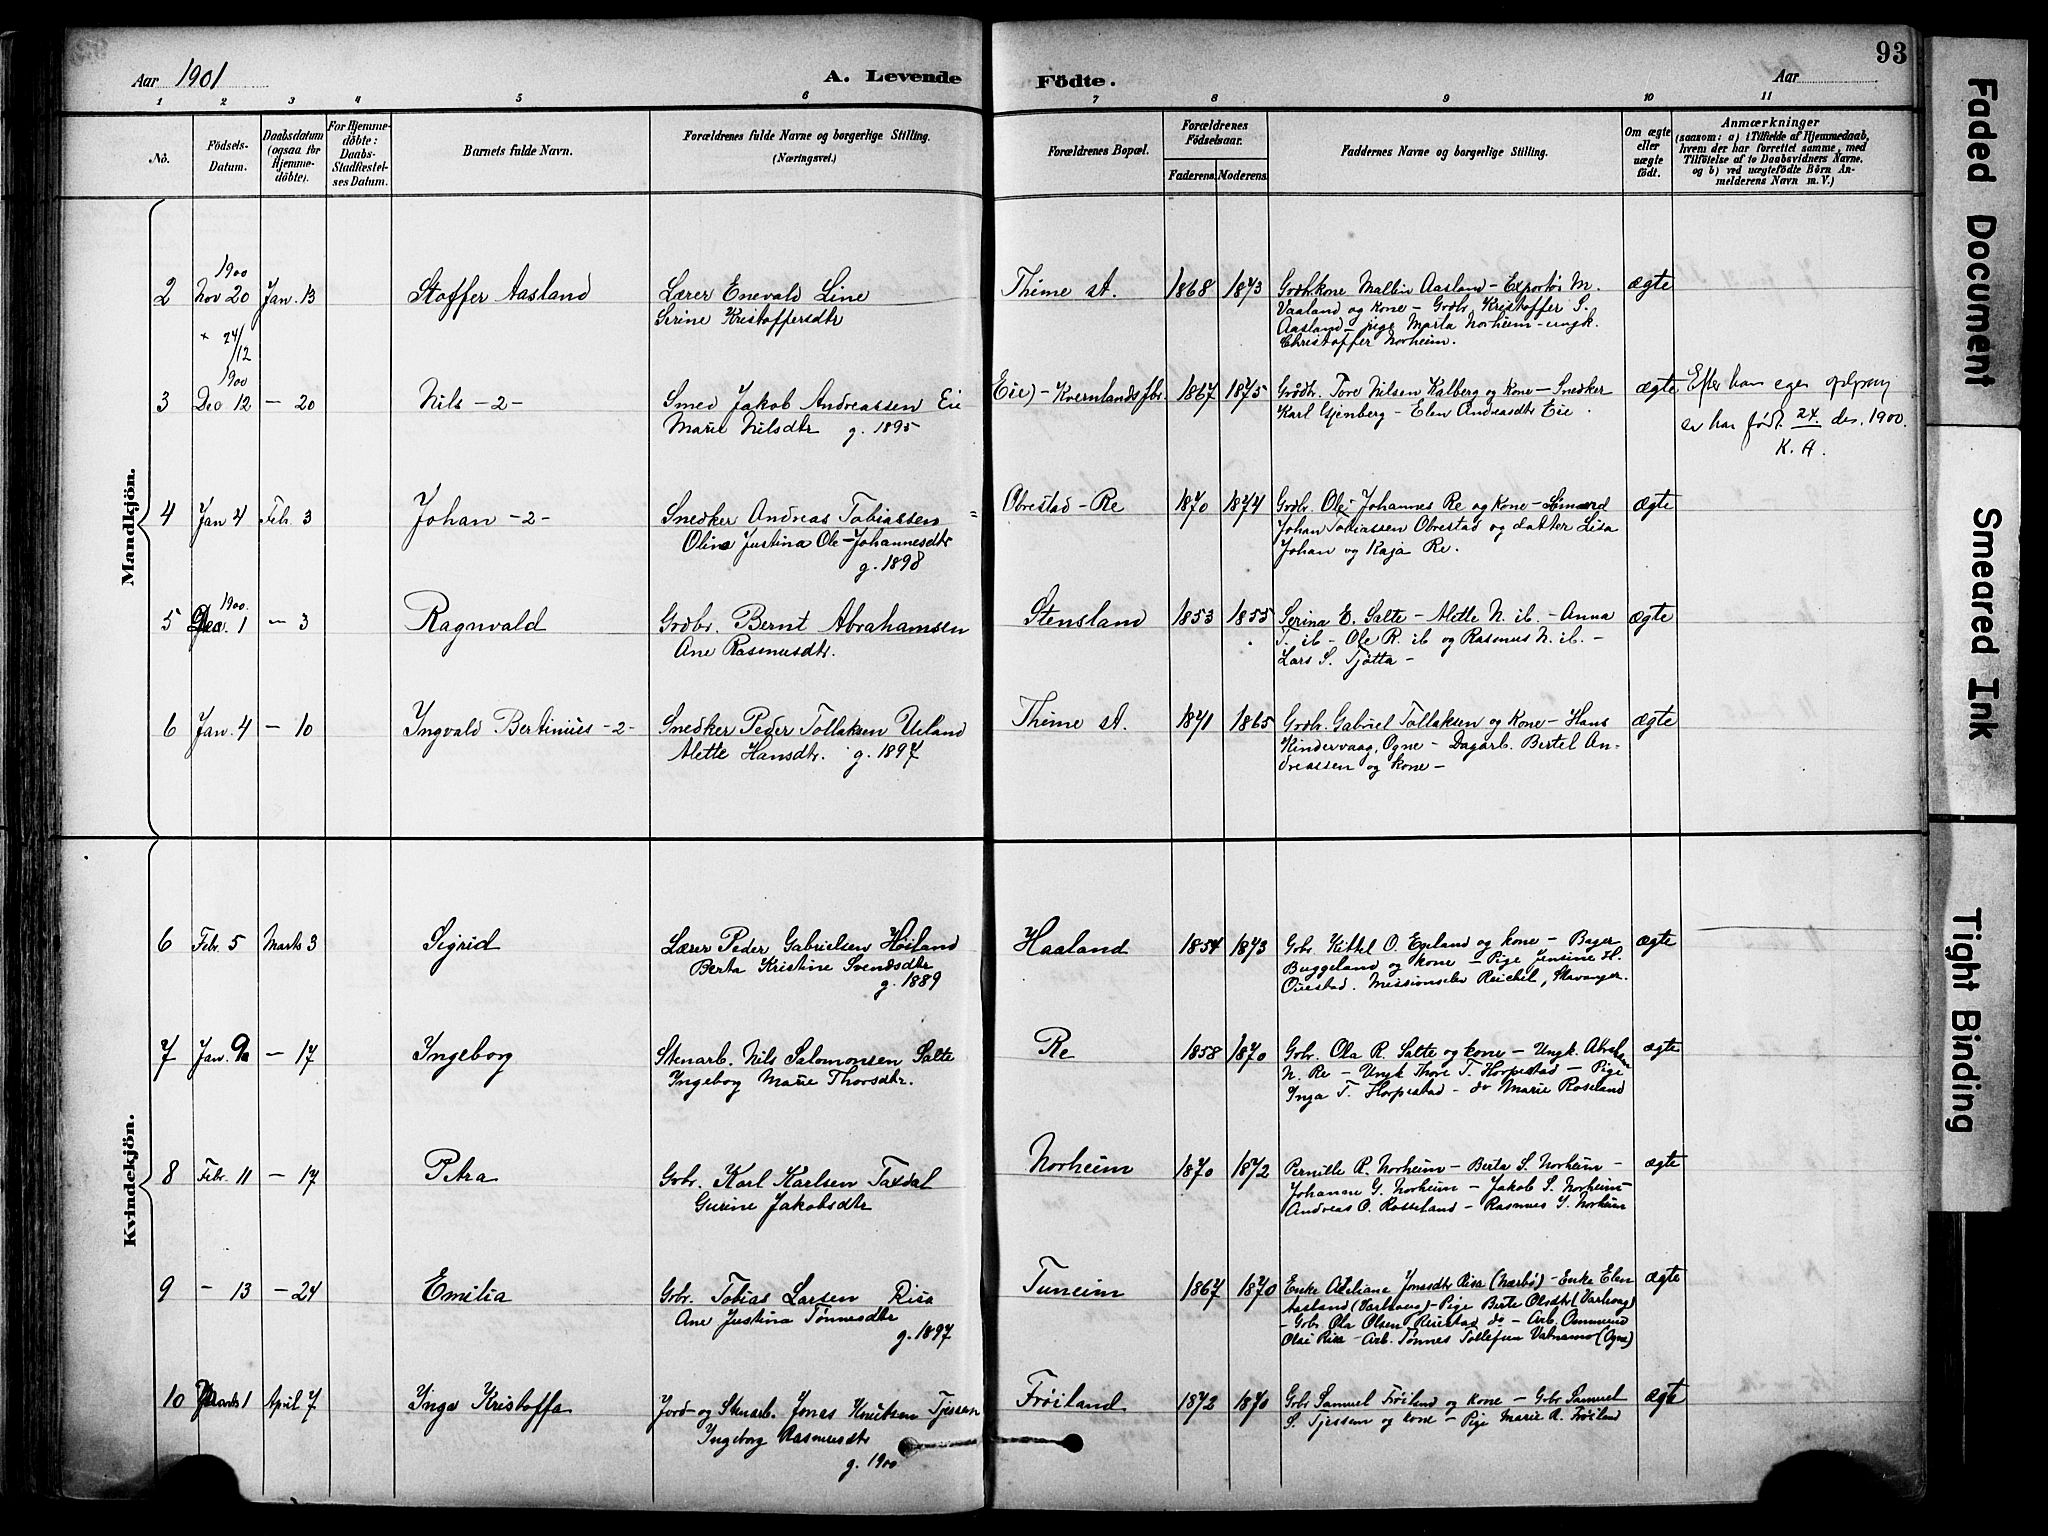 93
Aar 1901
A. Levende
Födte.
Aar
1 2 3 4 5 6 7 8 9 10 11
No.
Födsels-
Datum.
Daabsdatum
(ogsaa for
Hjemme-
döbte).
For Hjemme-
döbte:
Daabs-
Stadfæstel-
ses Datum.
Barnets fulde Navn.
Forældrenes fulde Navne og borgerlige Stilling.
(Næringsvei.)
Forældrenes Bopæl.
Forældrenes
Födselsaar.
Faderens. Moderens.
Faddernes Navne og borgerlige Stilling.
Om ægte
eller
uægte
födt.
Anmærkninger
(saasom: a) i Tilfælde af Hjemmedaab,
hvem der har forrettet samme, med
Tilföielse af to Daabsvidners Navne.
og b) ved uægtefödte Börn An-
melderens Navn m. V.)
Mandkjön.
2 1900 Nov 20 Jan. 13 Stoffer Aasland Lærer Enevald Line Thime st. 1868 1873 Grdbr.kone Mallin Aasland - Exportör M. ægte
Serine Kristoffersdtr Vaaland og kone - Grdbr Kristoffer S.
Aasland - pige Marta Norheim - ungk.
Christoffer Norheim.
× 24/12
1900
3 Dec 12 - 20 Nils - 2 - Smed Jakob Andreassen Eie (Eie) - Kvernlands fbr. 1867 1875 Grdbr. Tore Nilsen Kalberg og Kone - Snedker ægte Efter han egen opgav
Marie Nilsdtr g. 1895 Karl Gjenberg - Elen Andreasdtr Eie. er han født 24. des. 1900.
K. A.
4 Jan 4 Feb. 3 Johan - 2 - Snedker Andreas Tobiassen = Obrestad - Re 1870 1874 Grdbr. Ole Johannes Re og kone - ægte
Oline Justina Ole-Johannesdtr Johan Tobiassen Obrestad og datter Lisa
g. 1898 Johan og Kaja Re.
5 1900. Dec. 1 - 3 Ragnvald Grdbr. Bernt Abrahamsen Stensland 1853 1855 Serina E. Salte - Alette N. ib. - Anna ægte
Ane Rasmusdtr. T. ib - Ole R. ib og Rasmus N. ib. -
Lars S. Tjötta -
6 Jan. 4 - 10 Ingvald Bertinius - 2 - Snedker Peder Tollaksen Ueland Thime st. 1871 1865 Grdbr. Gabriel Tollaksen og Kone - Hans ægte
Alette Hansdtr. g. 1897 Kindervaag, Ogne - Dagarb. Bertel An-
dreassen og kone -
Kvindekjön.
6 Febr. 5 Marts 3 Sigrid Lærer Peder Gabrielsen Höiland Haaland 1854 1873 Gbr. Kittel O. Egeland og kone - Bager ægte
Berta Kristine Svendsdtr Buggeland og kone - Pige Jensine H.
g. 1889 Ouestad. Missionselev Reichel, Stavanger.
7 Jan. 9 - 17 Ingeborg Stenarb. Nils Salomonsen Salte Re 1858 1870 Gbr. Ola R. Salte og kone - Ungk. Abraham ægte
Ingeborg Marie Thorsdtr. N. Re - Ungk Thore T. Horpestad - Pige
Inga T. Horpestad - do Marie Roseland
8 Febr. 11 - 17 Petra Gbr. Karl Karlsen Taxdal Norheim 1870 1872 Pernille R. Norheim - Berta S. Norheim - ægte
Gurine Jakobsdtr Johanne G. Norheim - Jakob S. Norheim -
Andreas O. Rosseland - Rasmus J. Norheim
9 - 13 - 24 Emilia Gbr. Tobias Larsen Risa Tuneim 1867 1870 Enke Aseliane Jonsdtr Risa (Nærbö) - Enke Elen ægte
Ane Justina Tönnesdtr Aasland (Varhaug) - Pige Berte Olsdtr (Varhaug)
g. 1897 - Gbr. Ola Olsen Reiestad do - Arb. Ommund
Olai Risa - Arb. Tönnes Tollefsen Vatnamo (Ogne)
10 Marts 1 April 7 Inga Kristoffa Jord- og Stenarb. Jonas Knutsen Tjessem Fröiland 1872 1870 Gbr Samuel Fröiland og kone - Gbr Samuel ægte
Ingeborg Rasmusdtr S. Tjessem og kone - Pige Marie R. Fröiland
g. 1900
Faded Document
Smeared Ink
Tight Binding